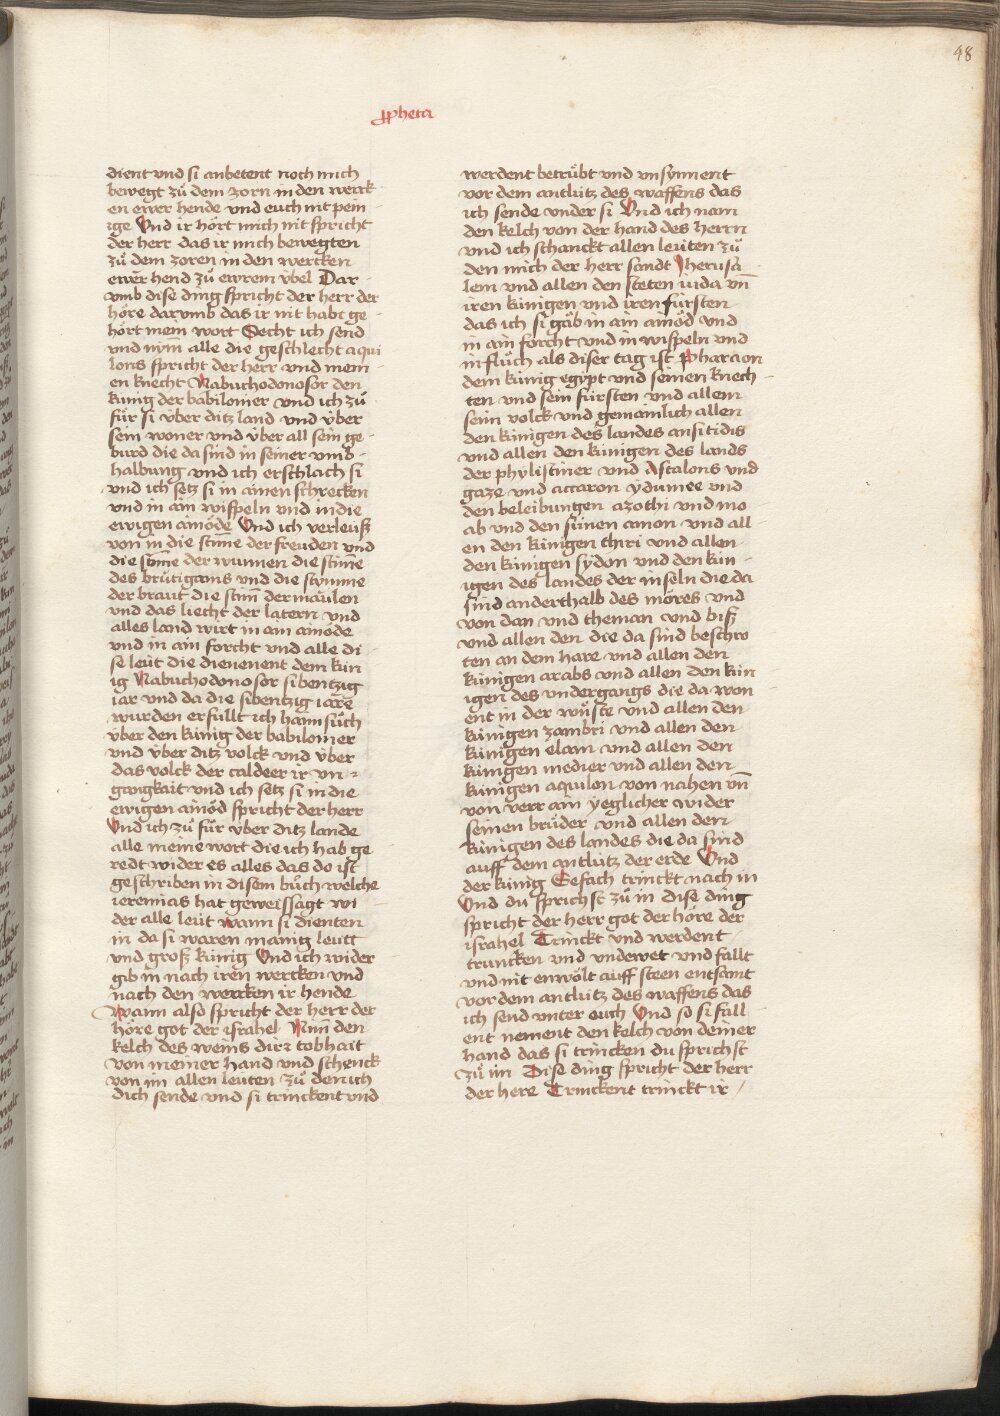 48
ꝓpheta
dient vnd si anbetent noch mich
bewegt zů dem zorn in den werck
en ewer hende vnd euch nit pein
ige Vnd ir hört mich nit spricht
der herr das ir mich bewegten
zů dem zoren in den wercken
ewer hend zů ewrem v̈bel Dar
vmb dise ding spricht der herr der
höre darvmb das ir nit habt ge
hört mein wort Secht ich send
vnd nym̄ alle die geschlecht aqui
lons spricht der herr vnd mein
en knecht Nabuchodonosor den
kunig der babilonier vnd ich zů
für si v̈ber ditz land vnd v̈ber
sein woner vnd v̈ber all sein ge
burd die da sind in seiner vmb
halbung vnd ich erschlach si
vnd ich setz si in ainen schrecken
vnd in ain wispeln vnd in die
ewigen ainöde Vnd ich verleuß
von in die stim̄e der freuden vnd
die stim̄e der wunnen die stim̄e
des brütigams vnd die stymme
der braut die stim̄ der maülen
vnd das liecht der latern vnd
alles land wirt in ain ainöde
vnd in ain forcht vnd alle di
se leüt die dienenent dem kün
ig Nabuchodonosor sibentzig
iar vnd da die sibentzig iare
wurden erfullt ich haim sůch
v̈ber den künig der babilonier
vnd v̈ber ditz volck vnd v̈ber
das volck der caldeer ir vn
gangkait vnd ich setz si in die
ewigen ainöd spricht der herr
Vnd ich zů für v̈ber ditz lande
alle meine wort die ich hab ge
redt wider es alles das do ist
geschriben in disem bůch welche
ieremias hat geweissagt wi
der alle leüt wann si dienten
in da si waren manig leutt
vnd groß künig Vnd ich wider
gib in nach iren wercken vnd
nach den wercken ir hende
Wann also spricht der herr der
höre got der israhel Nim̄ den
kelch des weins dirz tobhait
von meiner hand vnd schenck
von im allen leuten zů den ich
dich sende vnd si trinckent vnd
werdent betrübt vnd vnsynnent
vor dem antlütz des waffens das
ich sende vnder si Vnd ich nam
den kelch von der hand des herrn
vnd ich schanckt allen leüten zů
den mich der herr sandt Jherusa
lem vnd allen den steten iuda vn̄
iren künigen vnd iren fürsten
das ich si gäb in ain ainöd vnd
in ain forcht vnd in wispeln vnd
in flůch als diser tag ist Pharaon
dem künig egypt vnd seinen knech
ten vnd sein fürsten vnd allem
seim volck vnd gemainlich allen
den künigen des landes ansitidis
vnd allen den künigen des lands
der phylistiner vnd Ascalons vnd
gaze vnd accaron ydumee vnd
den beleibungen azothi vnd mo
ab vnd den sünen amon vnd all
en den künigen thiri vnd allen
den künigen sydon vnd den kün
igen des landes der inseln die da
sind anderthalb des möres vnd
von dan vnd theman vnd biß
vnd allen den die da sind beschro
ten an dem hare vnd allen den
künigen arabs vnd allen den kün
igen des vndergangs die da won
ent in der wüste vnd allen den
künigen zambri vnd allen den
künigen elam vnd allen den
künigen medier vnd allen den
künigen aquilon von nahen vn̄
von verr ain yeglicher wider
seinen brüder vnd allen den
künigen des landes die da sind
auff dem antlütz der erde Vnd
der künig Sesach trinckt nach in
Vnd du sprichst zů in dise ding
spricht der herr got der höre der
israhel Trinckt vnd werdent
truncken vnd vndewet vnd fallt
vnd nit enwölt auff steen entsamt
vor dem antlütz des waffens das
ich send vnter euch Vnd so si füll
ent nement den kelch von deiner
hand das si trincken du sprichst
zů im Dise ding spricht der herr
der here Trinckent trinckt ir